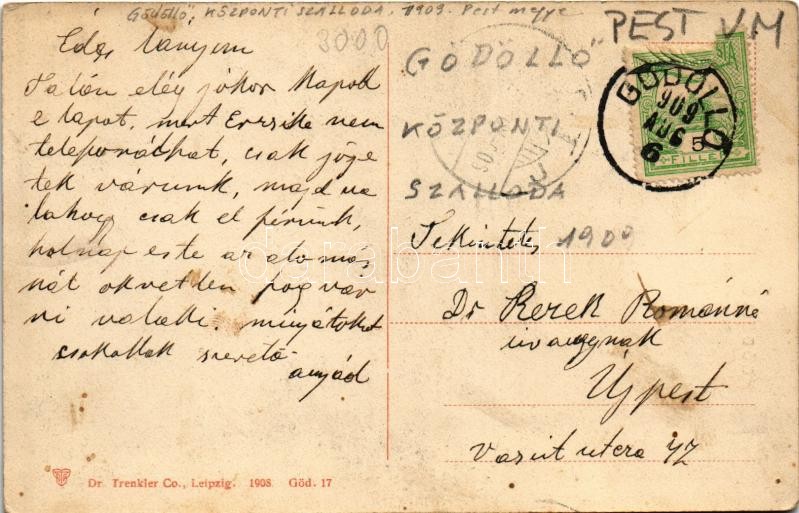 Gödöllő, KÖZPONTI SZÁLLODA. 1909. Pest megye
3000
PEST VM
GÖDÖLLŐ
KÖZPONTI
SZÁLLODA
1909
GÖDÖLLŐ
909
AUG
6
5
FILLÉR
Édes lányom
Talán elég jókor kapod
e lapot, mert Erzsike nem
telefonálhat, csak jöje
tek várunk, majd va
lahogy csak el férünk,
holnap este az áto más
nát okvetlen fog vár
ni valaki. minyátokat
csókollak szerető
anyád
Tekintetes
Dr Kerek Románné
úrasszonynak
Ujpest
Vasút utca 42
Dr. Trenkler Co., Leipzig. 1908. Göd. 17
darabanth